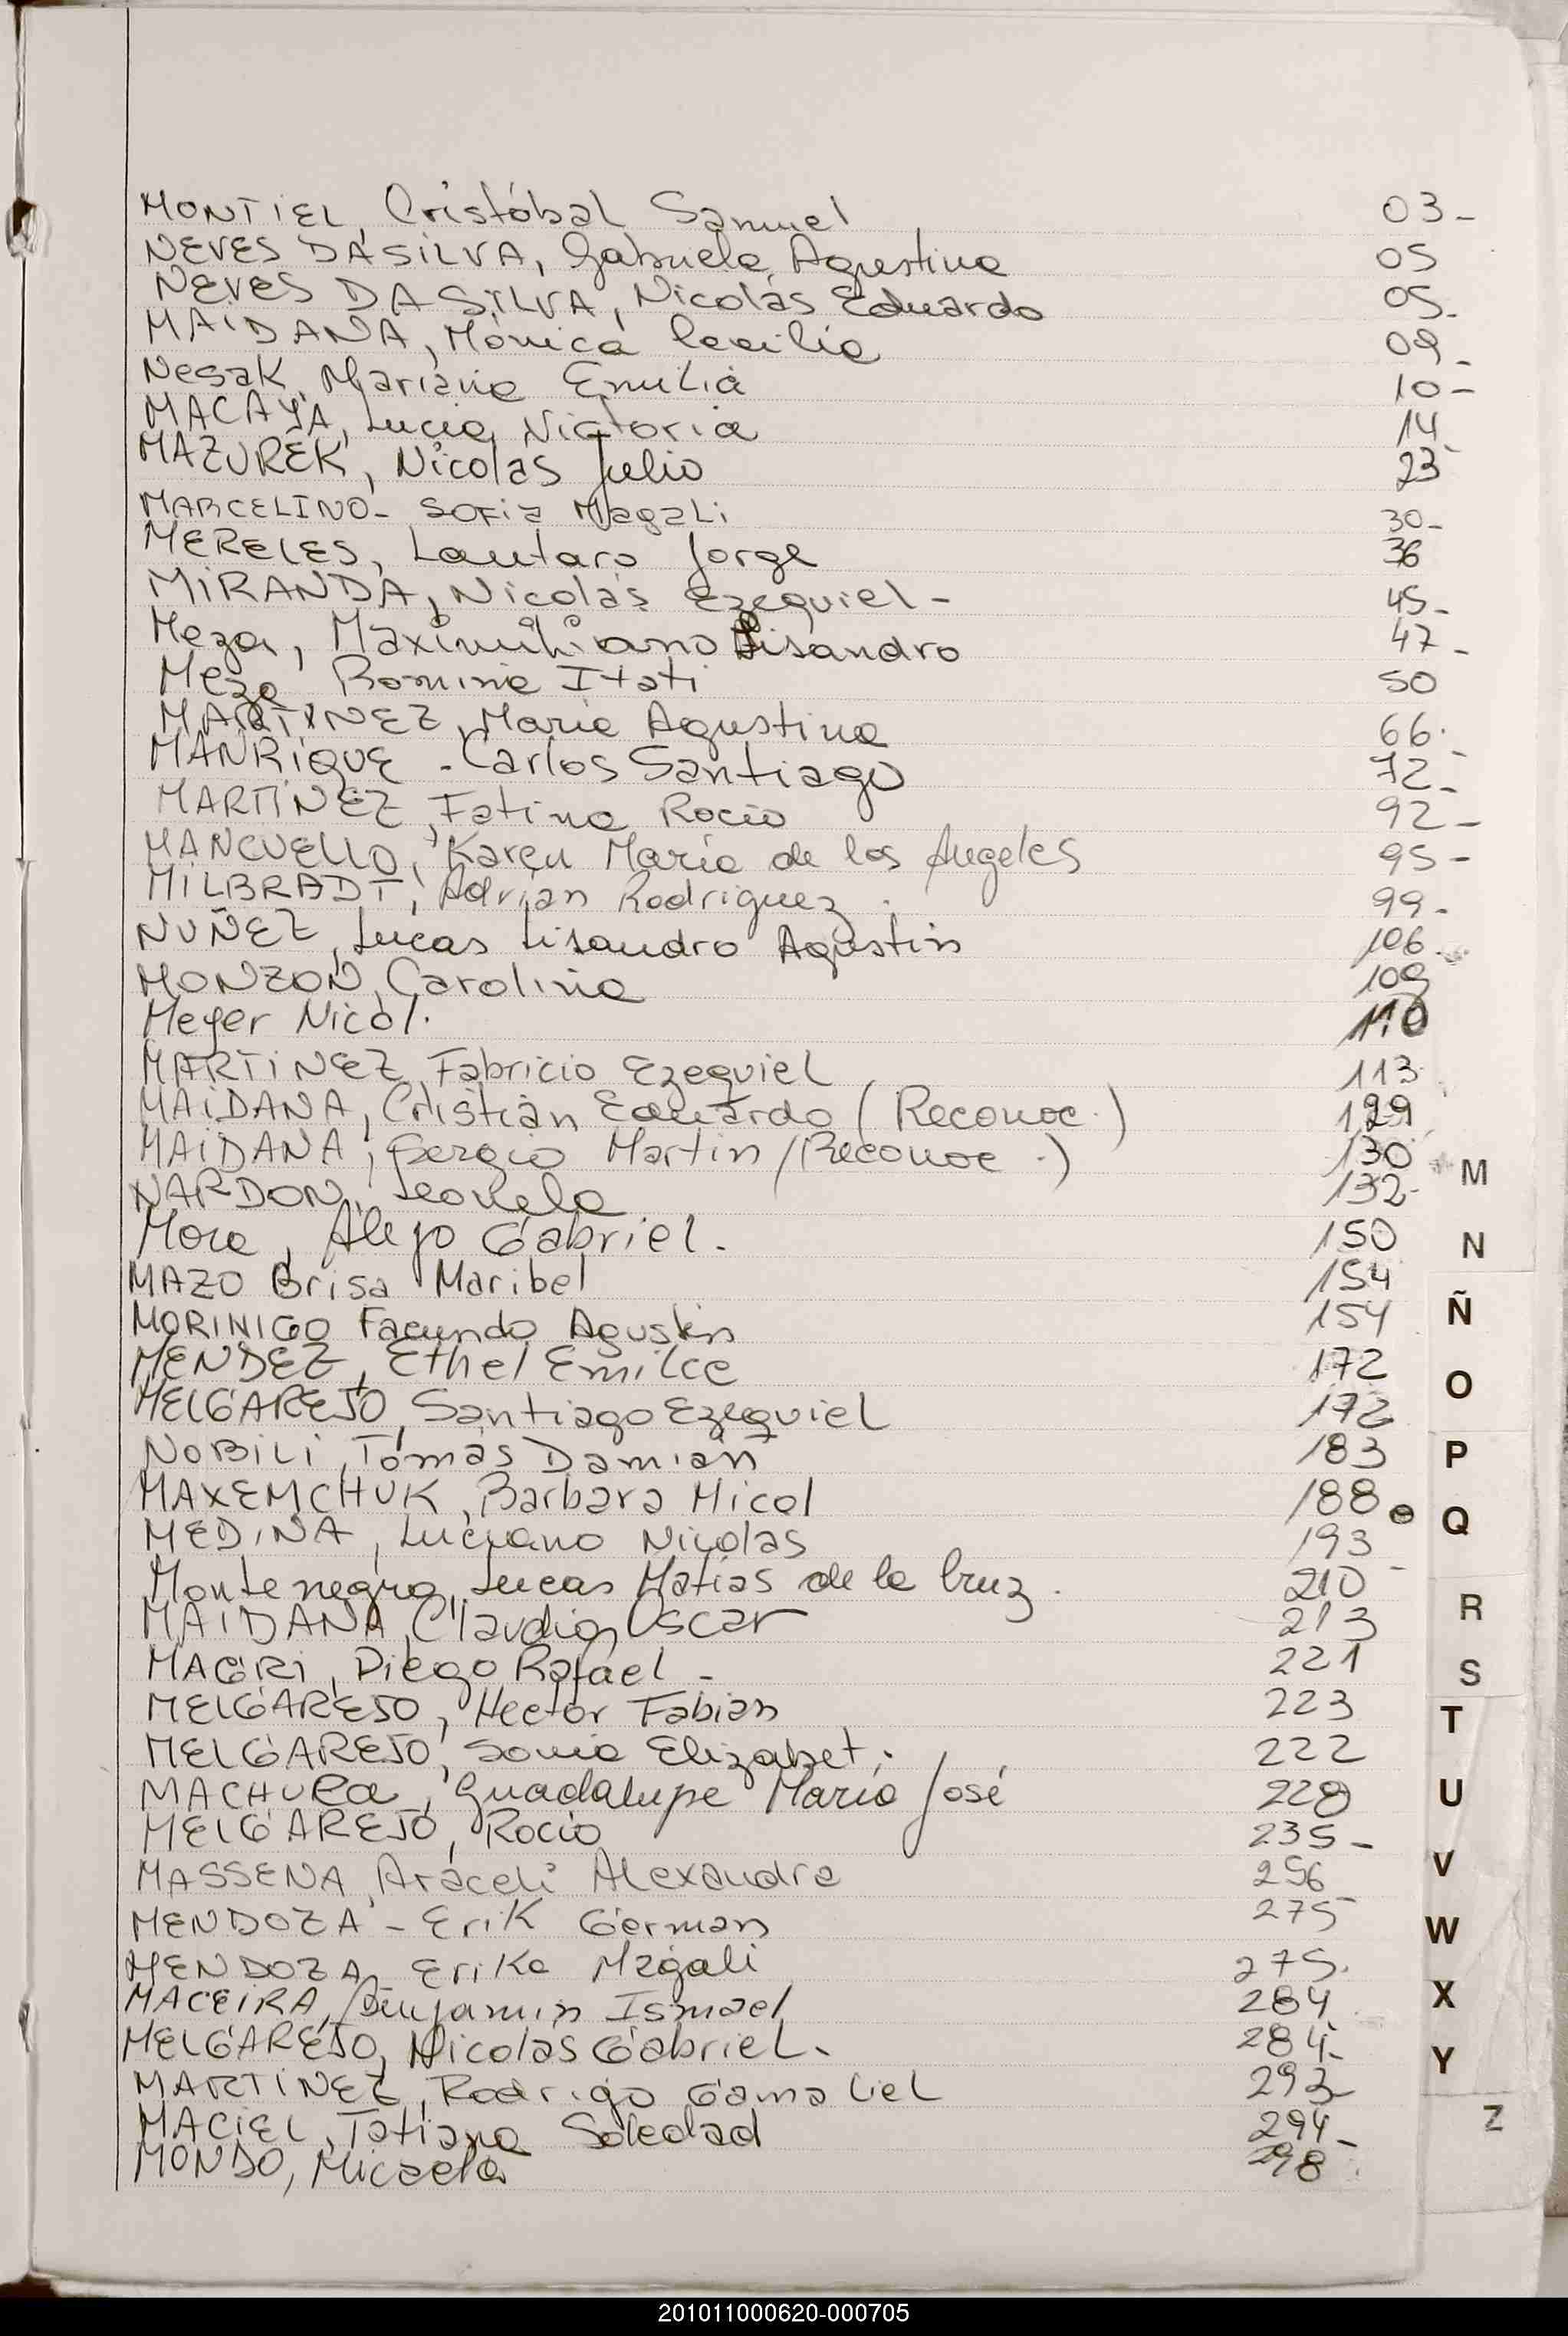 MONTIEL, Cristóbal Samuel 03-
NEVES DA SILVA, Gabriela Agustina 05
NEVES DA SILVA, Nicolás Eduardo 05.
MAIDANA, Mónica Cecilia 09-
Nesak, Mariana Emilia 10-
MACAYA, Lucia Victoria 14
MAZUREK, Nicolás Julio 23
MARCELINO- Sofia Magali 30-
MERELES, Lautaro Jorge 36
MIRANDA, Nicolás Ezequiel - 45-
Meza, Maximiliano Lisandro 47-
Meza Romina Itati 50
MARTINEZ, Maria Agustina 66.
MANRIQUE - Carlos Santiago 72-
MARTINEZ, Fatima Rocio 92-
MANCUELLO, Karen Maria de los Angeles 95-
MILBRADT, Adrian Rodriguez. 99-
NUÑEZ, Lucas Lisandro Agustin 106
MONZON, Carolina 109
Meyer Nicol. 110
MARTINEZ, Fabricio Ezequiel 113
MAIDANA, Cristian Eduardo (Reconoc.) 129
MAIDANA, Sergio Martin (Reconoc.) 130
NARDON, Leonela 132-
Mora, Alejo Gabriel. 150
MAZO Brisa Maribel 154
MORINIGO Facundo Agustin 154
MENDEZ, Ethel Emilce 172
MELGAREJO, Santiago Ezequiel 172
NOBILI, Tomás Damián 183
MAXEMCHUK, Barbara Micol 188
MEDINA, Luciano Nicolas 193
Montenegro, Lucas Matias de la Cruz. 210
MAIDANA, Claudio Oscar 213
MAGRI, Diego Rafael - 221
MELGAREJO, Hector Fabian 223
MELGAREJO, Sonia Elizabet. 222
MACHURa, Guadalupe María José 228
MELGAREJO, Rocio 235-
MASSENA, Araceli Alexandra 256
MENDOZA - Erik German 275
MENDOZA - Erika Magali 275.
MACEIRA, Benjamin Ismael 284
MELGAREJO, Nicolas Gabriel. 284-
MARTINEZ, Rodrigo Gamaliel 293
MACIEL, Tatiana Soledad 294-
MONDO, Micaela 298
M
N
Ñ
O
P
Q
R
S
T
U
V
W
X
Y
Z
201011000620-000705